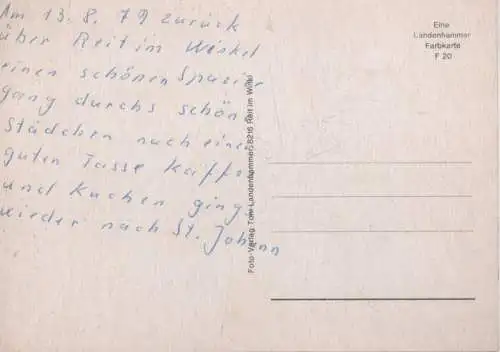 Am 13. 8. 79 zurück
über Reit im Winkel
einen schönen Spazier
gang durchs schöne
Städchen nach einer
guten Tasse Kaffe
und Kuchen ging
wieder nach St. Johann
Eine
Landenhammer
Farbkarte
F 20
Foto-Verlag Toni Landenhammer, 8216 Reit im Winkl